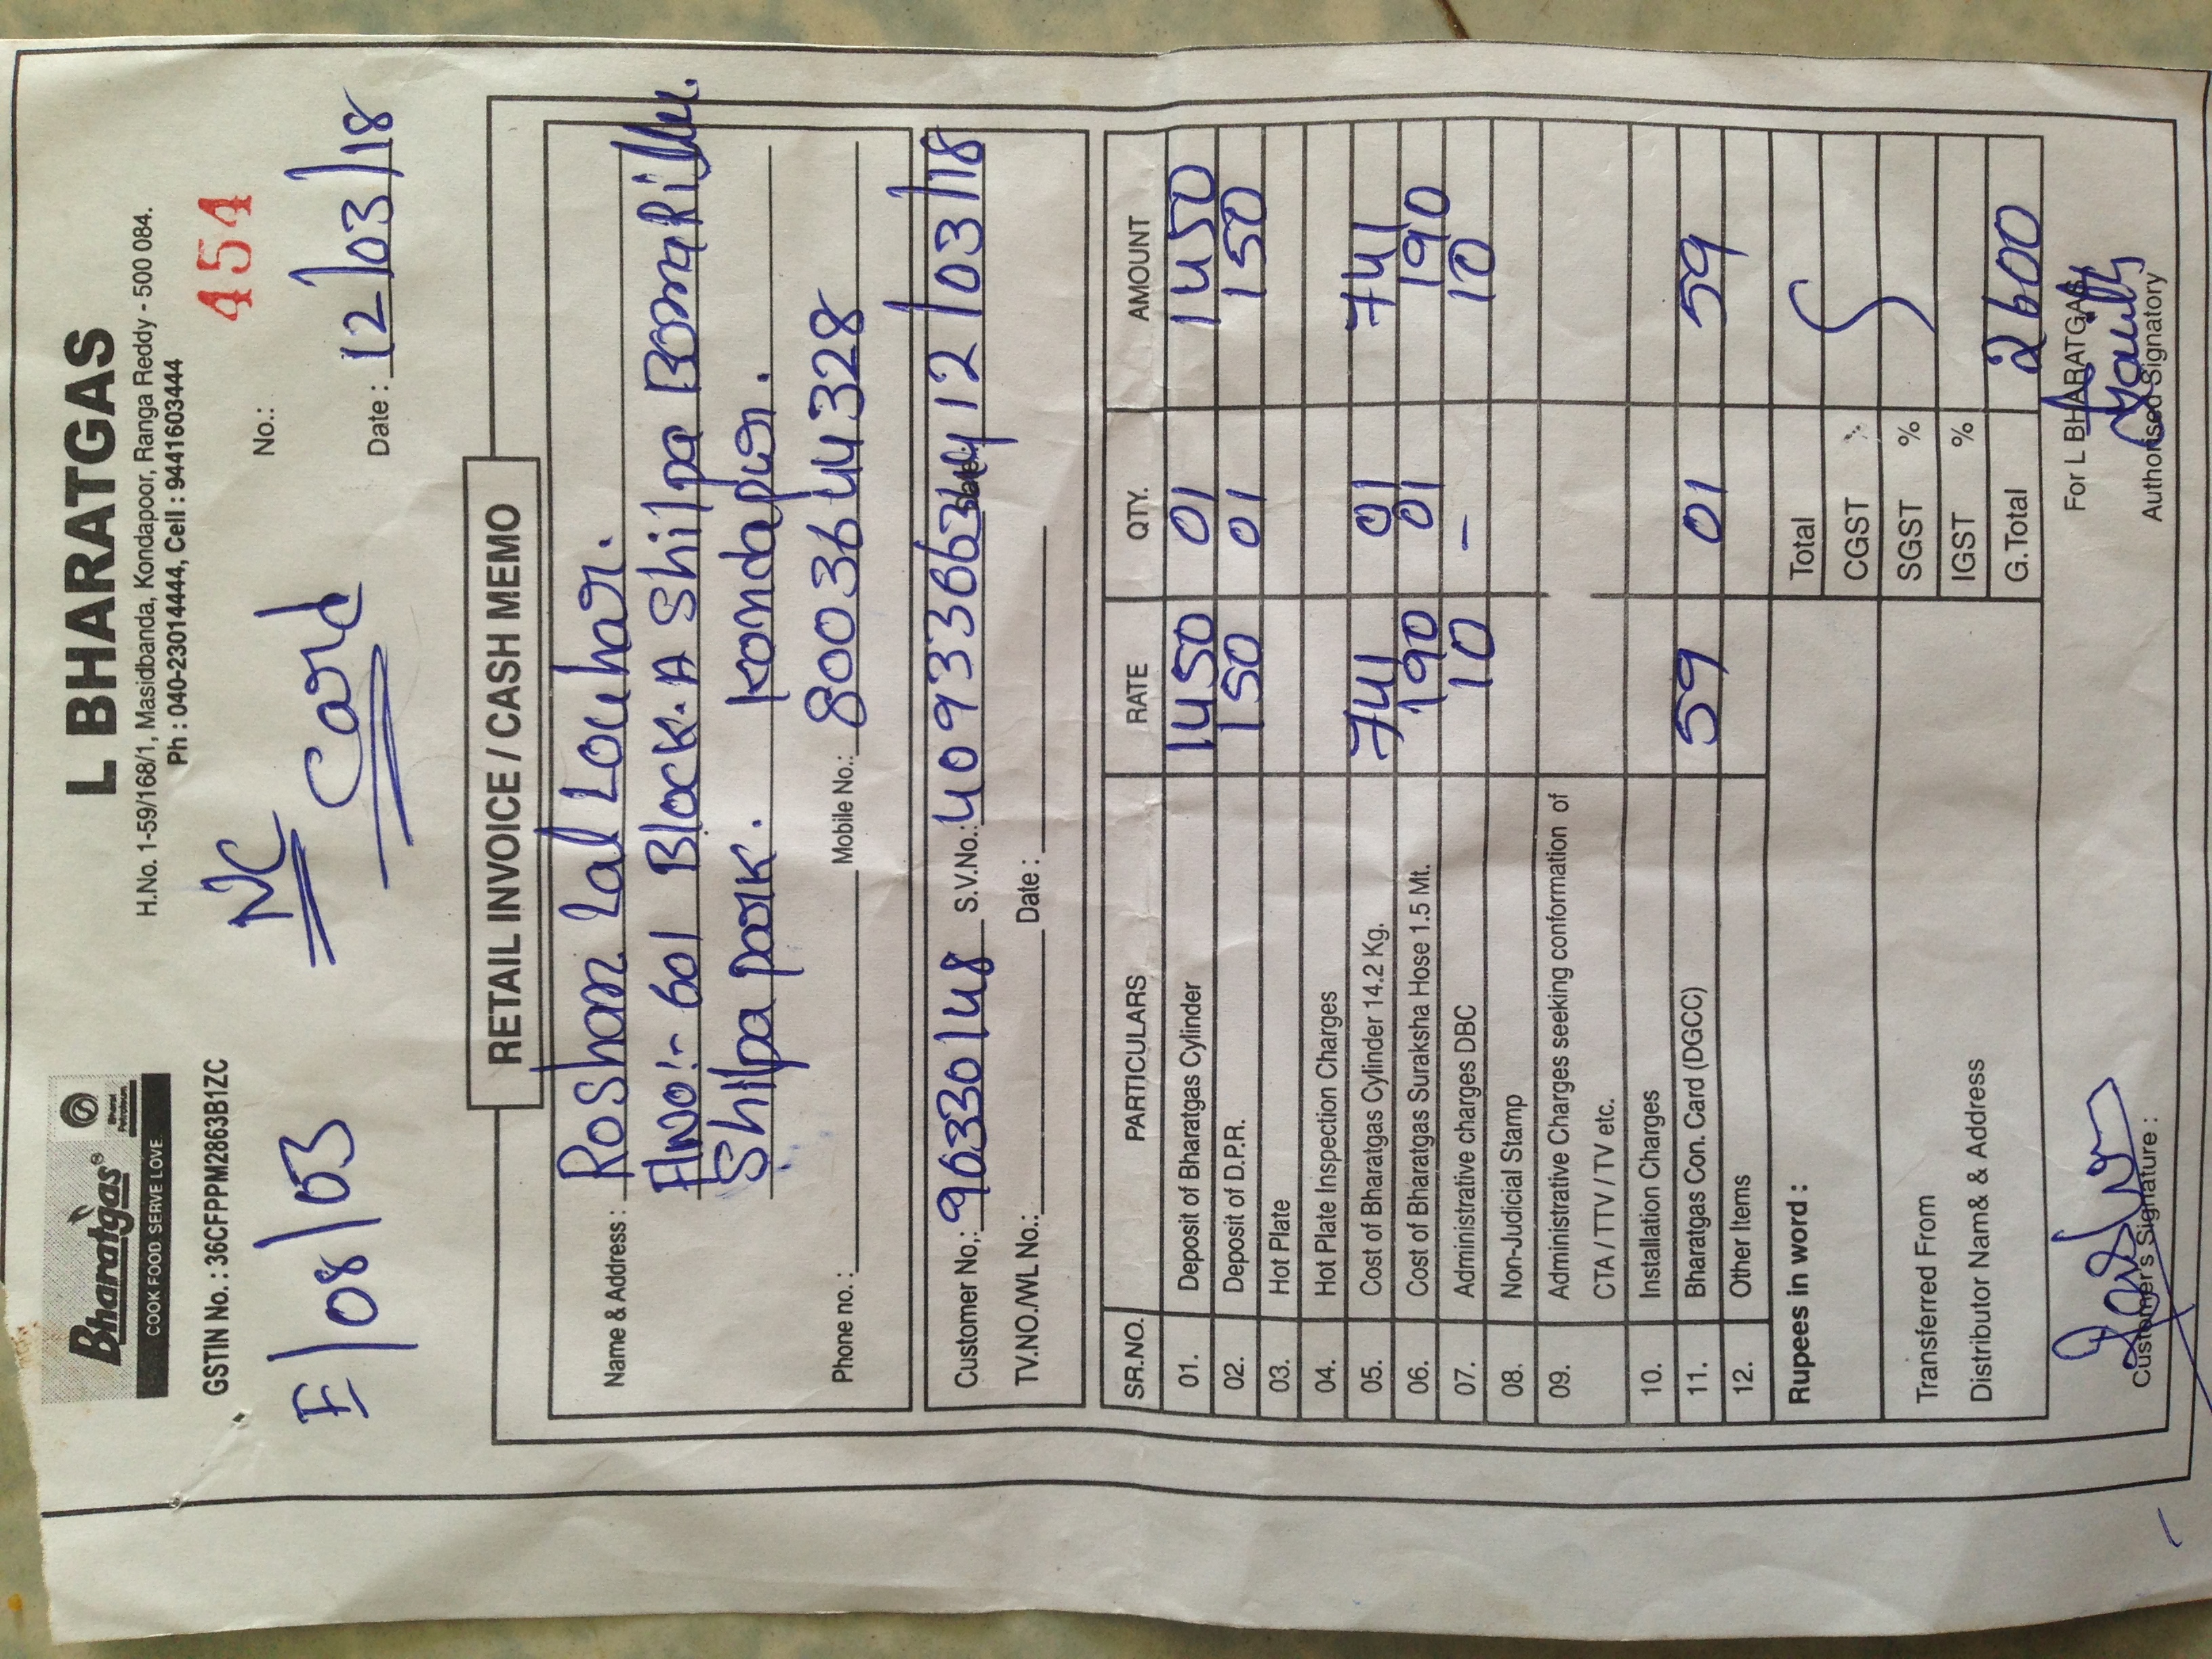 Bharatgas®
Bharat
Petroleum
COOK FOOD. SERVE LOVE.
L BHARATGAS
H.No. 1-59/168/1, Masidbanda, Kondapoor, Ranga Reddy - 500 084.
Ph : 040-23014444, Cell : 9441603444
GSTIN No. : 36CFPPM2863B1ZC
No.: 454
E/08/03 NC Card
Date : 12/03/18
RETAIL INVOICE / CASH MEMO
Name & Address : Roshan Lal Louhar.
Flno:- 601 Block.A Shilpa
Shilpa park. Kondapur.
Phone no. : Mobile No.: 8003644328
Customer No,: 90330148 S.V.No.: Date: 12/03/18
TV.NO./WL No.: Date :
SR.NO. PARTICULARS RATE QTY. AMOUNT
01. Deposit of Bharatgas Cylinder 1450 01 1450
02. Deposit of D.P.R. 150 01 150
03. Hot Plate
04. Hot Plate Inspection Charges
05. Cost of Bharatgas Cylinder 14.2 Kg. 741 01 741
06. Cost of Bharatgas Suraksha Hose 1.5 Mt. 190 01 190
07. Administrative charges DBC 10 - 10
08. Non-Judicial Stamp
09. Administrative Charges seeking conformation of
CTA / TTV / TV etc.
10. Installation Charges
11. Bharatgas Con. Card (DGCC) 59 01 59
12. Other Items
Rupees in word : Total
CGST
SGST %
Transferred From
IGST %
Distributor Nam& & Address
G.Total 2600
For L BHARATGAS
Customer's Signature :
Authorised Signatory